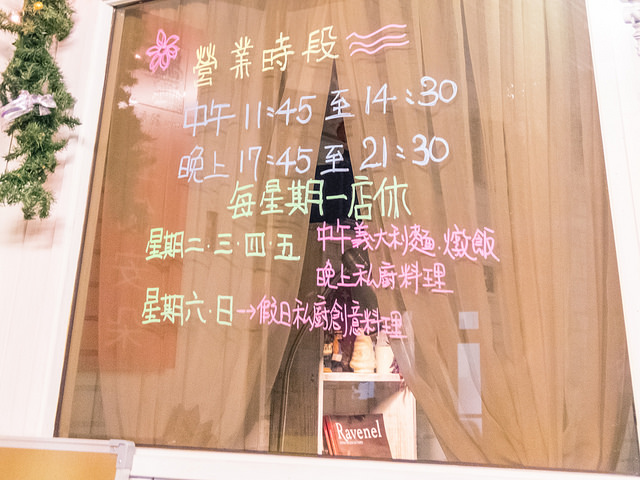 營業時段
中午 11:45 至 14:30
晚上 17:45 至 21:30
每星期一店休
星期二.三.四.五 中午義大利麵.燉飯
晚上私廚料理
星期六.日→假日私廚創意料理
Ravenel